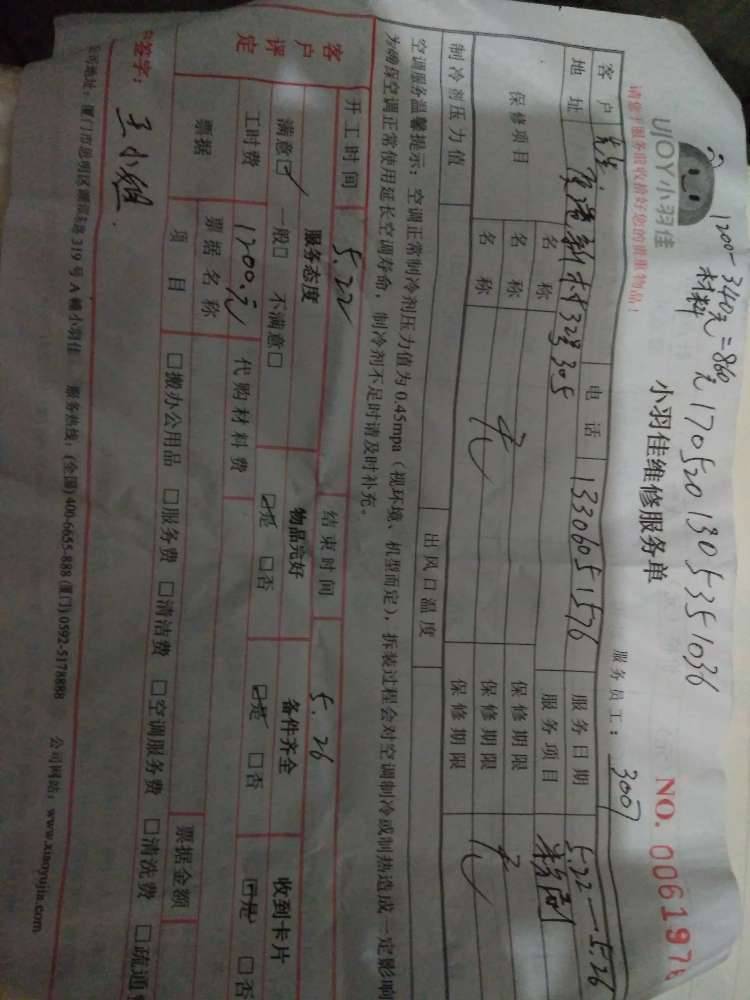 1200-340元=860元
材料
17052013053351036
UJOY小羽佳
小羽佳维修服务单
NO. 0061978
请您于服务前收拾好您的贵重物品!
服务员工: 3007
客户 先生 电话 13306051576 服务日期 5.22—5.26
地址 新村32号305 服务项目
保修项目 名称 保修期限
名称 无 保修期限 无
名称 保修期限
制冷剂压力值 出风口温度
空调服务温馨提示:空调正常制冷剂压力值为0.45mpa(视环境、机型而定),拆装过程会对空调制冷或制热造成一定影响
为确保空调正常使用延长空调寿命,制冷剂不足时请及时补充。
开工时间 5.22 结束时间 5.26
客户评定 服务态度 物品完好 备件齐全 收到卡片
满意☑ 一般□ 不满意□ ☑是 □否 ☑是 □否 ☑是 □否
工时费 1200.元 代购材料费
票据 票据名称 票据金额
项目 □搬办公用品 □服务费 □清洁费 □空调服务费 □清洗费 □疏通
签字: 王小姐
公司地址:厦门市思明区 319号A幢小羽佳 服务热线:(全国)400-6655-888 (厦门)0592-5178888 公司网站:www.xiaoyujia.com